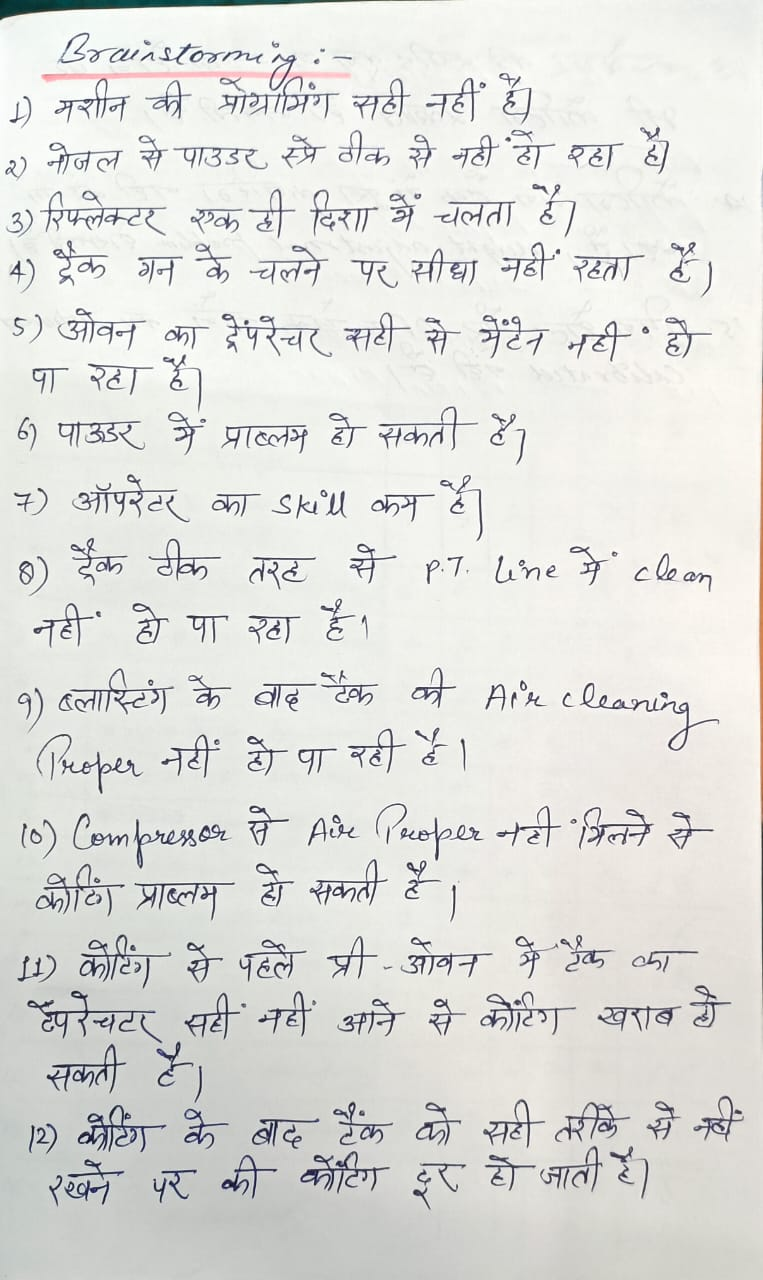 Brainstorming :-
1) मशीन की प्रोग्रामिंग सही नहीं है।
2) नोजल से पाउडर स्प्रे ठीक से नहीं हो रहा है।
3) रिफ्लेक्टर एक ही दिशा में चलता है।
4) ट्रैक गन के चलने पर सीधा नहीं रहता है।
5) ओवन का टेंपरेचर सही से मेंटेन नहीं हो
पा रहा है।
6) पाऊडर में प्राब्लम हो सकती है।
7) ऑपरेटर का skill कम है।
8) टैंक ठीक तरह से P.T. Line में clean
नहीं हो पा रहा है।
9) ब्लास्टिंग के बाद टैंक की Air cleaning
Proper नहीं हो पा रही है।
10) Compressor से Air Proper नहीं मिलने से
कोटिंग प्राब्लम हो सकती है।
11) कोटिंग से पहले प्री-ओवन में टैंक का
टेंपरेचर सही नहीं आने से कोटिंग खराब हो
सकती है।
12) कोटिंग के बाद टैंक को सही तरीके से नहीं
रखने पर की कोटिंग दूर हो जाती है।